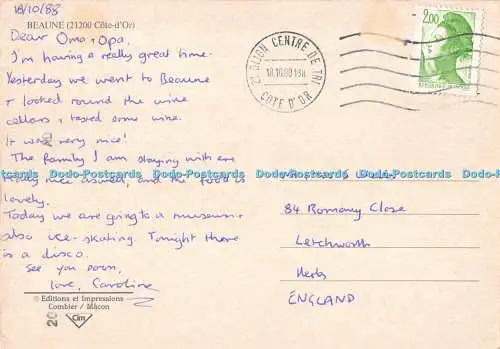 18/10/88
BEAUNE (21200 Côte-d'Or)
Dear Oma + Opa,
I'm having a really great time.
Yesterday we went to Beaune
+ looked round the wine
cellars + tasted some wine.
It was very nice!
The family I am staying with are
and the food is
lovely.
Today we are going to a museum +
also ice-skating. Tonight there
is a disco.
See you soon,
love, Caroline
© Editions et Impressions
Combier / Mâcon
Cim
21 DIJON CENTRE DE TRI
18.10.88
CÔTE D'OR
2,00
84 Romany Close
Letchworth
Herts
ENGLAND
Dodo-Postcards Dodo-Postcards Dodo-Postcards Dodo-Postcards Dodo-Postcards